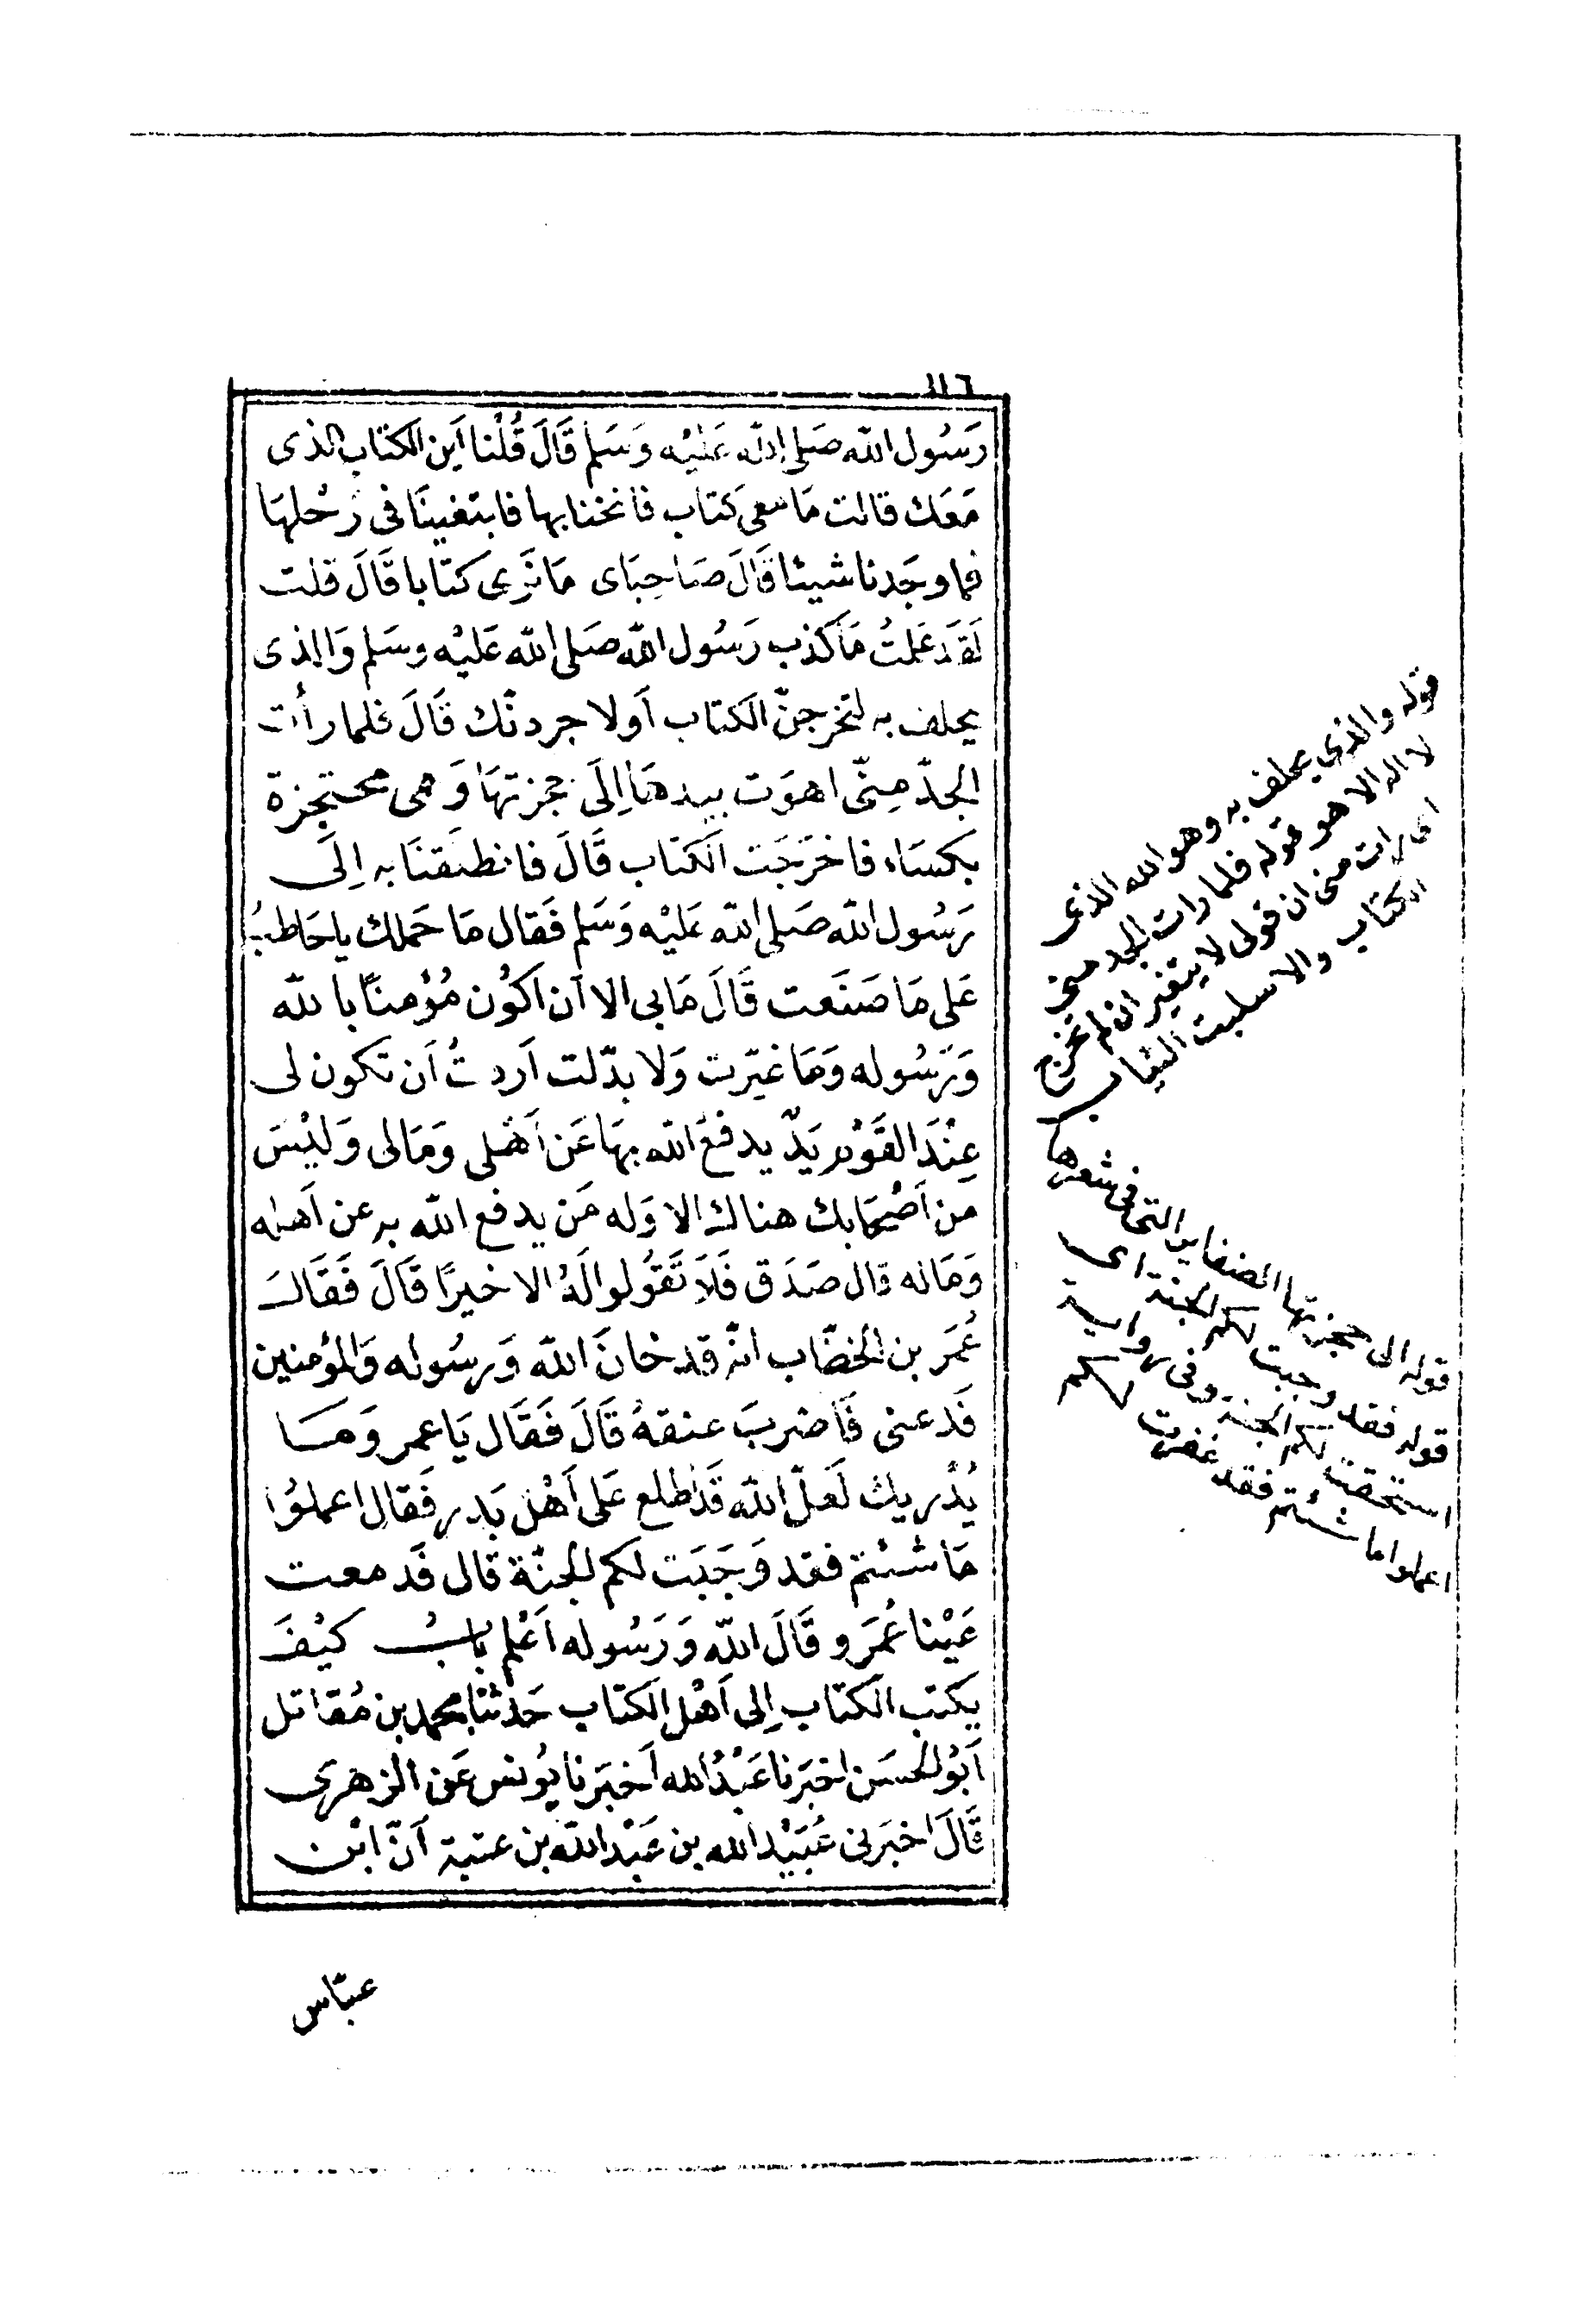 ١١٦
رَسُول الله صَلى الله عَليْه وَسَلم قَالَ قُلْنا اَين الكتاب الذى
مَعَك قالت مَا معى كتاب فانخنا بها فابتغينَا فى رَحْلهَا
فما وجَدنا شيئا قَالَ صَاحِبَاى مَا نَرى كتابا قَالَ قلت
لَقَد عَلمتُ مَا كذب رَسُول الله صَلى الله عَليْه وسَلم وَالذى
يحلف به لتخرجنّ الكتاب أَولا جردنّك قَالَ فلما رأت
الجدّ مِنّى اهوَت بيدهَا اِلَى حجزتهَا وَ هى محتجزة
بكسَاء فاخرَجَت الكتاب قَالَ فانطلقنَا به اِلَى
رَسُول الله صَلى الله عَليْه وَسَلم فَقال مَا حَملك يا حَاطبُ
عَلى مَا صَنَعت قَالَ مَا بى الا اَن اكُون مُؤمنًا بالله
وَرَسُوله وَمَا غيّرت وَلا بدّلت اَردتُ اَن تكون لى
عِنْدَ القَوْم يَدٌ يدفعُ الله بهَا عَن اَهْلى وَمَالى وَليْسَ
من اَصْحَابك هناك الا وَله مَن يدفع الله به عن اَهله
وَمَاله قال صَدَق فَلاَ تَقُولوا لَهُ الا خيرًا قَالَ فَقَالَ
عُمَر بن الخطّاب انّه قد خانَ الله وَرسُوله وَالمؤمنين
فَدعنى فَاضربَ عنقهُ قَالَ فَقَال يَا عمر وَمَا
يُدْريك لَعَلّ الله قَد اطلع عَلى اَهْل بَدر فَقال اعملوُا
مَا شئتم فقد وَجَبَت لكم الجنّة قال فَدمعت
عَيْنا عُمَر وقَالَ الله وَرَسُوله اَعْلم بابُ كيْفَ
يكتب الكتاب اِلى اَهْل الكتاب حَدثنا محمد بن مُقاتل
اَبُو الحسَن اخبَرنا عَبْدُ الله اَخبَرنا يُونس عَن الزهرى
قَالَ اخبَرنى عُبَيْد الله بن عَبْد الله بن عتبة اَنّ ابْن
عبّاس
قوله والذي يحلف به وهو الله الذى
لا اله الا هو قوله فلما رات الجد منى
اى رات منى ان قولى لا يتغير ان لم تخرج
الكتاب والا سلبت الثياب
قوله الى حجزتها الضفاير التى فى شعرها
قوله فقد وجبت لكم الجنة اى
استحقت لكم الجنة وفى رواية
اعملوا ما شئتم فقد غفرت لكم